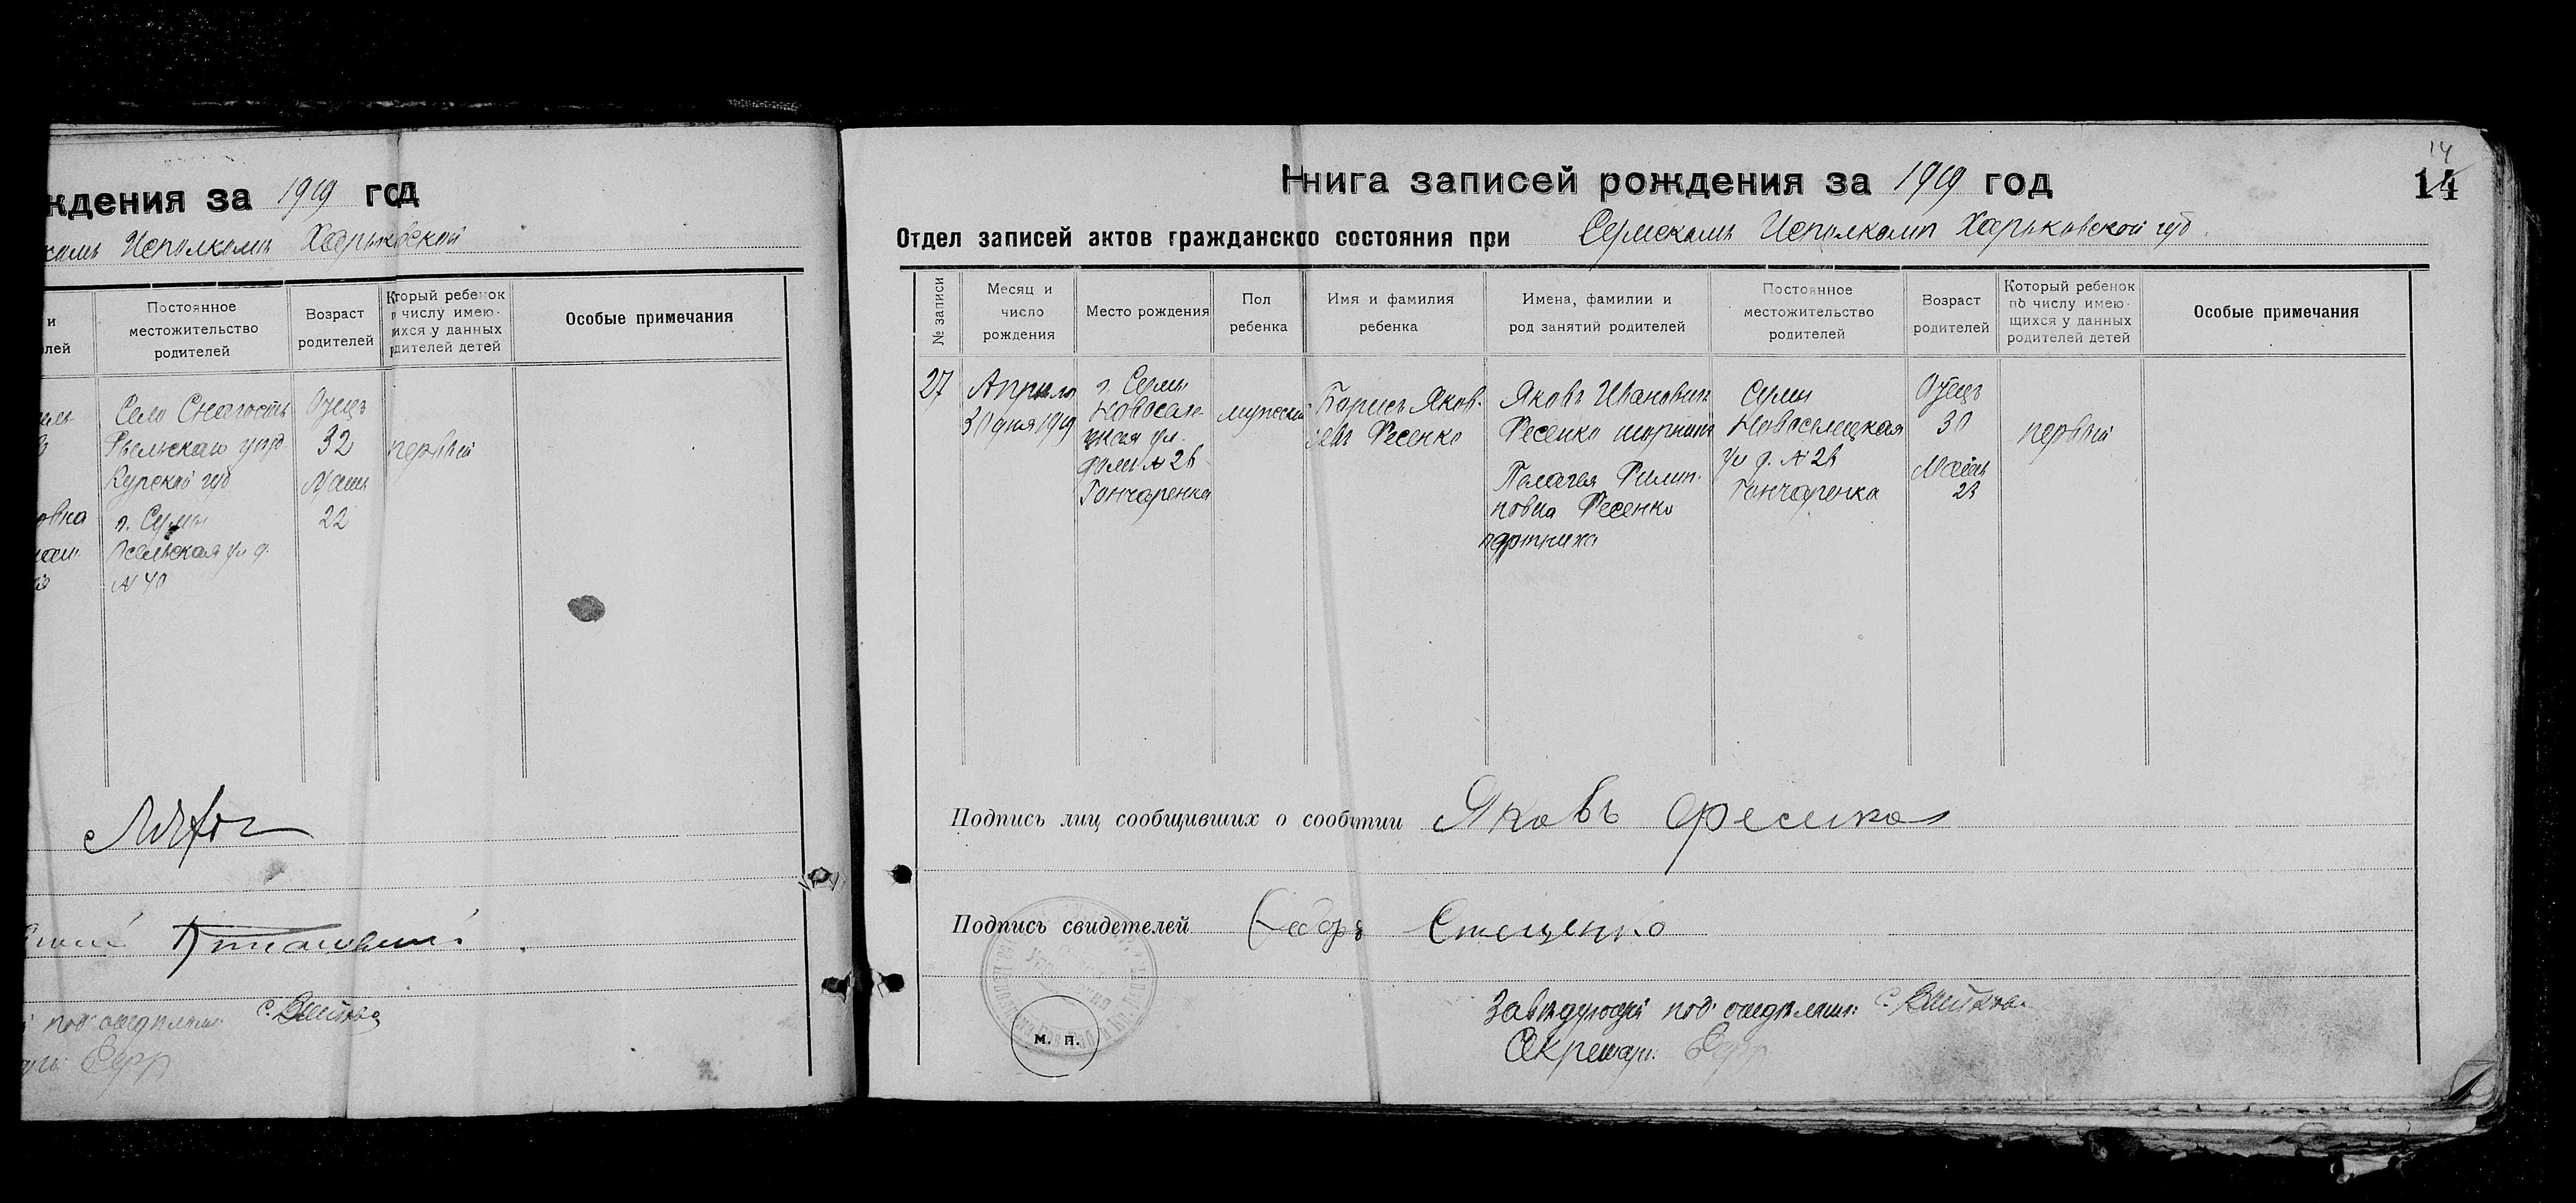 ждения за 1919 год
комъ Исполкомъ Харьковской
и
лей
Постоянное
местожительство
родителей
Возраст
родителей
Который ребенок
по числу имею-
щихся у данных
родителей детей
Особые примечания
Село Снагость
Рыльскаго уезд
Курской губ
г. Сумы
Псельская ул д.
№ 40
Отецъ
32
Мать
22
первый
овна
под. отделомъ:
14
14
Книга записей рождения за 1919 год
Отдел записей актов гражданского состояния при Сумскомъ Исполкомъ Харьковской губ.
№ записи
Месяц и
число
рождения
Место рождения
Пол
ребенка
Имя и фамилия
ребенка
Имена, фамилии и
род занятий родителей
Постоянное
местожительство
родителей
Возраст
родителей
Который ребенок
по числу имею-
щихся у данных
родителей детей
Особые примечания
27
Апреля
30 дня 1919
г. Сумы
Новоселе-
цкая ул.
домъ № 26
Гончаренка
мужской
Борисъ Яков-
левъ Фесенко
Яковъ Ивановичъ
Фесенко
Пелагея Филип-
повна Фесенко
портниха
Сумы
Новоселецкая
ул д. № 26
Гончаренка
Отецъ
30
Мать
23
первый
Подпись лиц сообщивших о событии Яковъ Фесенко
Подпись свидетелей Федоръ Стеценко
М. П.
Заведующій под. отделомъ:
Секретарь: